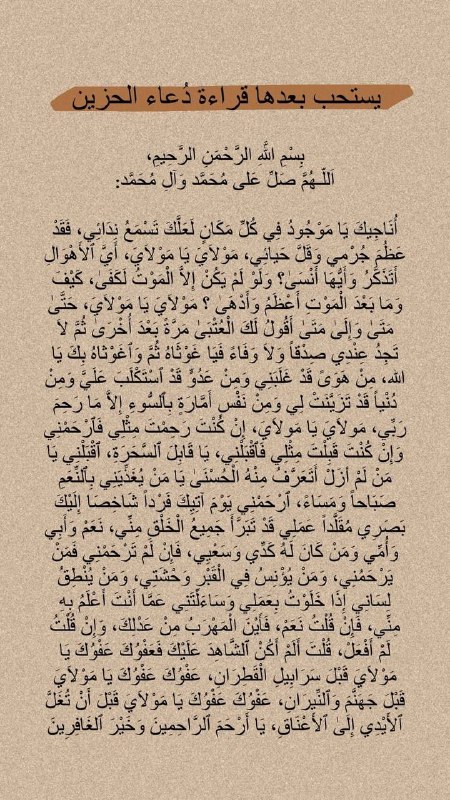 يستحب بعدها قراءة دُعاء الحزين
بِسْمِ اللَّهِ الرَّحْمَنِ الرَّحِيمِ،
اَللّـهُمَّ صَلِّ عَلى مُحَمَّد وَآلِ مُحَمَّد:
أُنَاجِيكَ يَا مَوْجُودُ فِي كُلِّ مَكَانٍ لَعَلَّكَ تَسْمَعُ نِدَائِي، فَقَدْ
عَظُمَ جُرْمِي وَقَلَّ حَيَائِي، مَوْلاَيَ يَا مَوْلاَيَ، أَيَّ ٱلأَهْوَالِ
أَتَذَكَّرُ وَأَيُّهَا أَنْسَىٰ؟ وَلَوْ لَمْ يَكُنْ إِلاَّ الْمَوْتُ لَكَفَىٰ، كَيْفَ
وَمَا بَعْدَ الْمَوْتِ أَعْظَمُ وَأَدْهَىٰ ؟ مَوْلاَيَ يَا مَوْلاَيَ، حَتَّىٰ
مَتَىٰ وَإِلَىٰ مَتَىٰ أَقُولُ لَكَ الْعُتْبَىٰ مَرَّةً بَعْدَ أُخْرَىٰ ثُمَّ لاَ
تَجِدُ عِنْدِي صِدْقاً وَلاَ وَفَاءً فَيَا غَوْثَاهُ ثُمَّ وَاغَوْثَاهُ بِكَ يَا
الله، مِنْ هَوَىً قَدْ غَلَبَنِي وَمِنْ عَدُوٍّ قَدْ ٱسْتَكْلَبَ عَلَيَّ وَمِنْ
دُنْياً قَدْ تَزَيَّنَتْ لِي وَمِنْ نَفْسٍ أَمَّارَةٍ بِٱلسُّوءِ إِلاَّ مَا رَحِمَ
رَبِّي، مَولاَيَ يَا مَوْلاَيَ، إِنْ كُنْتَ رَحِمْتَ مِثْلِي فَٱرْحَمْنِي
وَإِنْ كُنْتَ قَبِلْتَ مِثْلِي فَٱقْبَلْنِي، يَا قَابِلَ السَّحَرَةِ، ٱقْبَلْنِي يَا
مَنْ لَمْ أَزَلْ أَتَعَرَّفُ مِنْهُ الْحُسْنَىٰ يَا مَنْ يُغَذِّينِي بِٱلنِّعَمِ
صَبَاحاً وَمَسَاءً، ٱرْحَمْنِي يَوْمَ آتِيكَ فَرْداً شَاخِصَا إِلَيْكَ
بَصَرِي مُقَلَّداً عَمَلِي قَدْ تَبَرَّأَ جَمِيعُ الْخَلْقِ مِنِّي، نَعَمْ وَأَبِي
وَأُمِّي وَمَنْ كَانَ لَهُ كَدِّي وَسَعْيِي، فَإِنْ لَمْ تَرْحَمْنِي فَمَنْ
يَرْحَمُنِي، وَمَنْ يُؤْنِسُ فِي الْقَبْرِ وَحْشَتِي، وَمَنْ يُنْطِقُ
لِسَانِي إِذَا خَلَوْتُ بِعَمَلِي وَسَاءَلْتَنِي عَمَّا أَنْتَ أَعْلَمُ بِهِ
مِنِّي، فَإِنْ قُلْتُ نَعَمْ، فَأَيْنَ الْمَهْرَبُ مِنْ عَدْلِكَ، وَإِنْ قُلْتُ
لَمْ أَفْعَلْ، قُلْتَ أَلَمْ أَكُنْ الشَّاهِدَ عَلَيْكَ فَعَفْوُكَ عَفْوُكَ يَا
مَوْلاَيَ قَبْلَ سَرَابِيلِ الْقَطِرَانِ، عَفْوُكَ عَفْوُكَ يَا مَوْلاَيَ
قَبْلَ جَهَنَّمَ وَٱلنِّيرَانِ، عَفْوُكَ عَفْوُكَ يَا مَوْلاَيَ قَبْلَ أَنْ تُغَلَّ
ٱلأَيْدِي إِلَىٰ ٱلأَعْنَاقِ، يَا أَرْحَمَ ٱلرَّاحِمِينَ وَخَيْرَ ٱلغَافِرِينَ